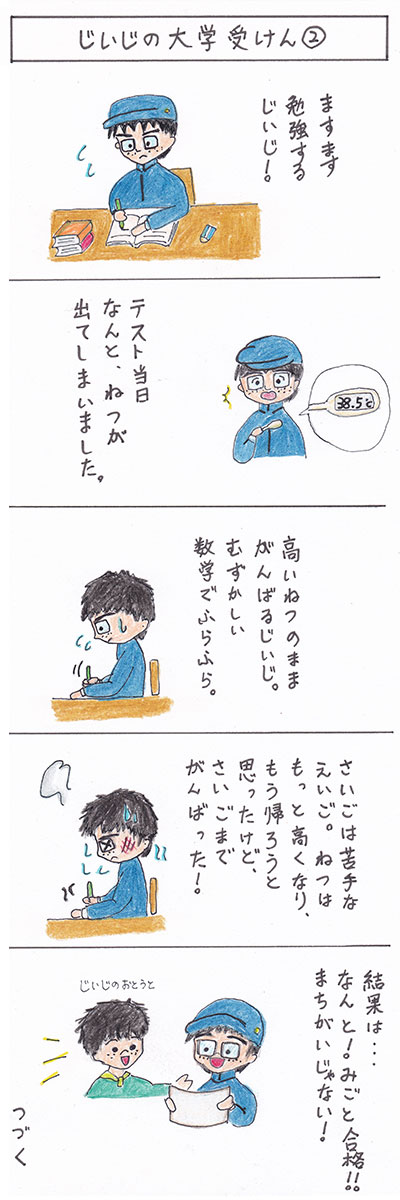 じいじの大学受けん②
ますます
勉強する
じいじ!。
テスト当日
なんと、ねつが
出てしまいました。
38.5℃
高いねつのまま
がんばるじいじ。
むずかしい
数学でふらふら。
さいごは苦手な
えいご。ねつは
もっと高くなり、
もう帰ろうと
思ったけど、
さいごまで
がんばった!。
結果は・・・
なんと!。みごと合格!!
まちがいじゃない!。
じいじのおとうと
つづく